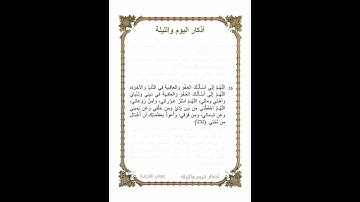 أذكار اليوم والليلة
اللَّهُمَّ إِنِّي أَسْأَلُكَ العَفْوَ وَالعَافِيَةَ فِي الدُّنْيَا وَالآخِرَةِ،
اللَّهُمَّ إِنِّي أَسْأَلُكَ العَفْوَ وَالعَافِيَةَ فِي دِينِي وَدُنْيَايَ
وَأَهْلِي وَمَالِي، اللَّهُمَّ اسْتُرْ عَوْرَاتِي، وَآمِنْ رَوْعَاتِي،
اللَّهُمَّ احْفَظْنِي مِن بَيْنِ يَدَيَّ وَمِنْ خَلْفِي وَعَنْ يَمِينِي
وَعَن شِمَالِي، وَمِن فَوْقِي، وَأَعُوذُ بِعَظَمَتِكَ أَن أُغْتَالَ
مِن تَحْتِي.
أذكار اليوم والليلة